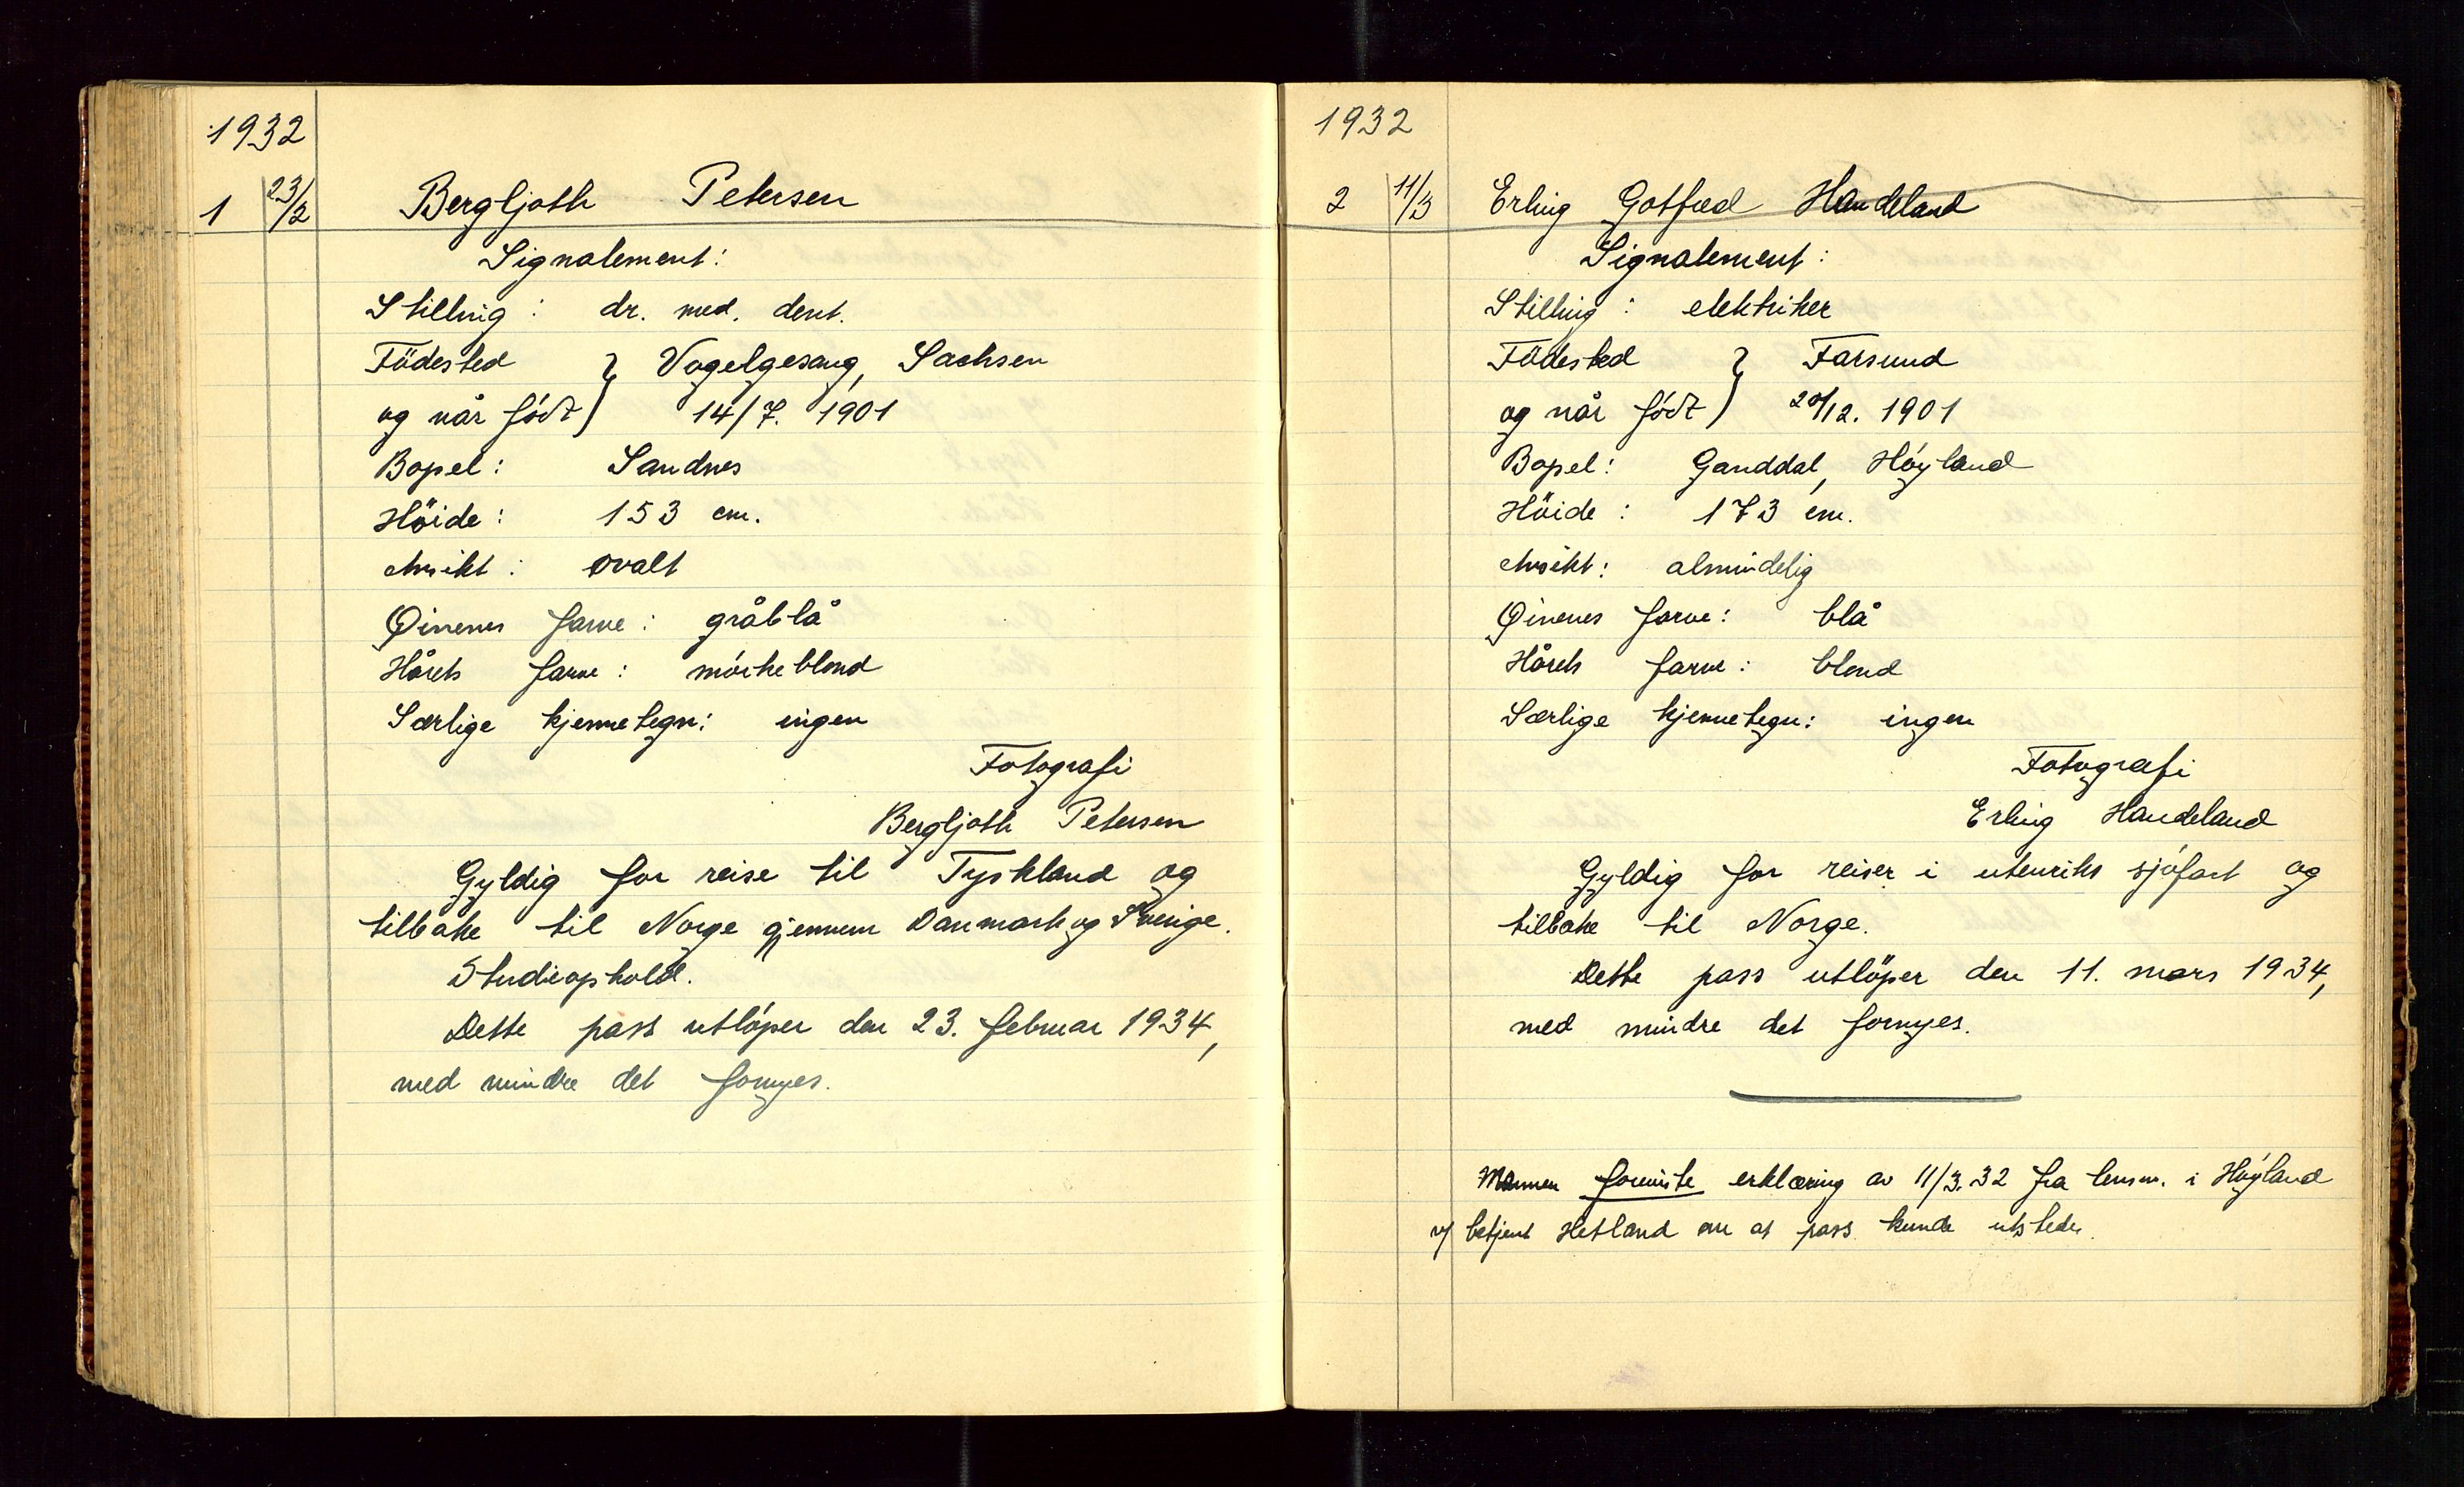 1932
1 23/2 Bergljoth Petersen
Signalement:
Stilling: dr. med. dent.
Födested } Vogelgesang, Sachsen
og når födt } 14/7. 1901
Bopel: Sandnes
Höide: 153 cm.
Ansikt: ovalt
Øinenes farve: gråblå
Hårets farve: mörkeblond
Særlige kjennetegn: ingen
Fotografi
Bergljoth Petersen
Gyldig for reise til Tyskland og
tilbake til Norge gjennem Danmark og Sverige.
Studieophold.
Dette pass utlöper den 23. februar 1934,
med mindre det fornyes.
1932
2 11/3 Erling Gotfred Handeland
Signalement:
Stilling: elektriker
Födested } Farsund
og når födt } 20/12. 1901
Bopel: Ganddal, Höyland
Höide: 173 cm.
Ansikt: almindelig
Øinenes farve: blå
Hårets farve: blond
Særlige kjennetegn: ingen
Fotografi
Erling Handeland
Gyldig for reiser i utenriks sjöfart og
tilbake til Norge.
Dette pass utlöper den 11. mars 1934,
med mindre det fornyes.
Mannen foreviste erklæring av 11/3.32 fra lensm. i Höyland
v/ betjent Hetland om at pass kunde utstedes.